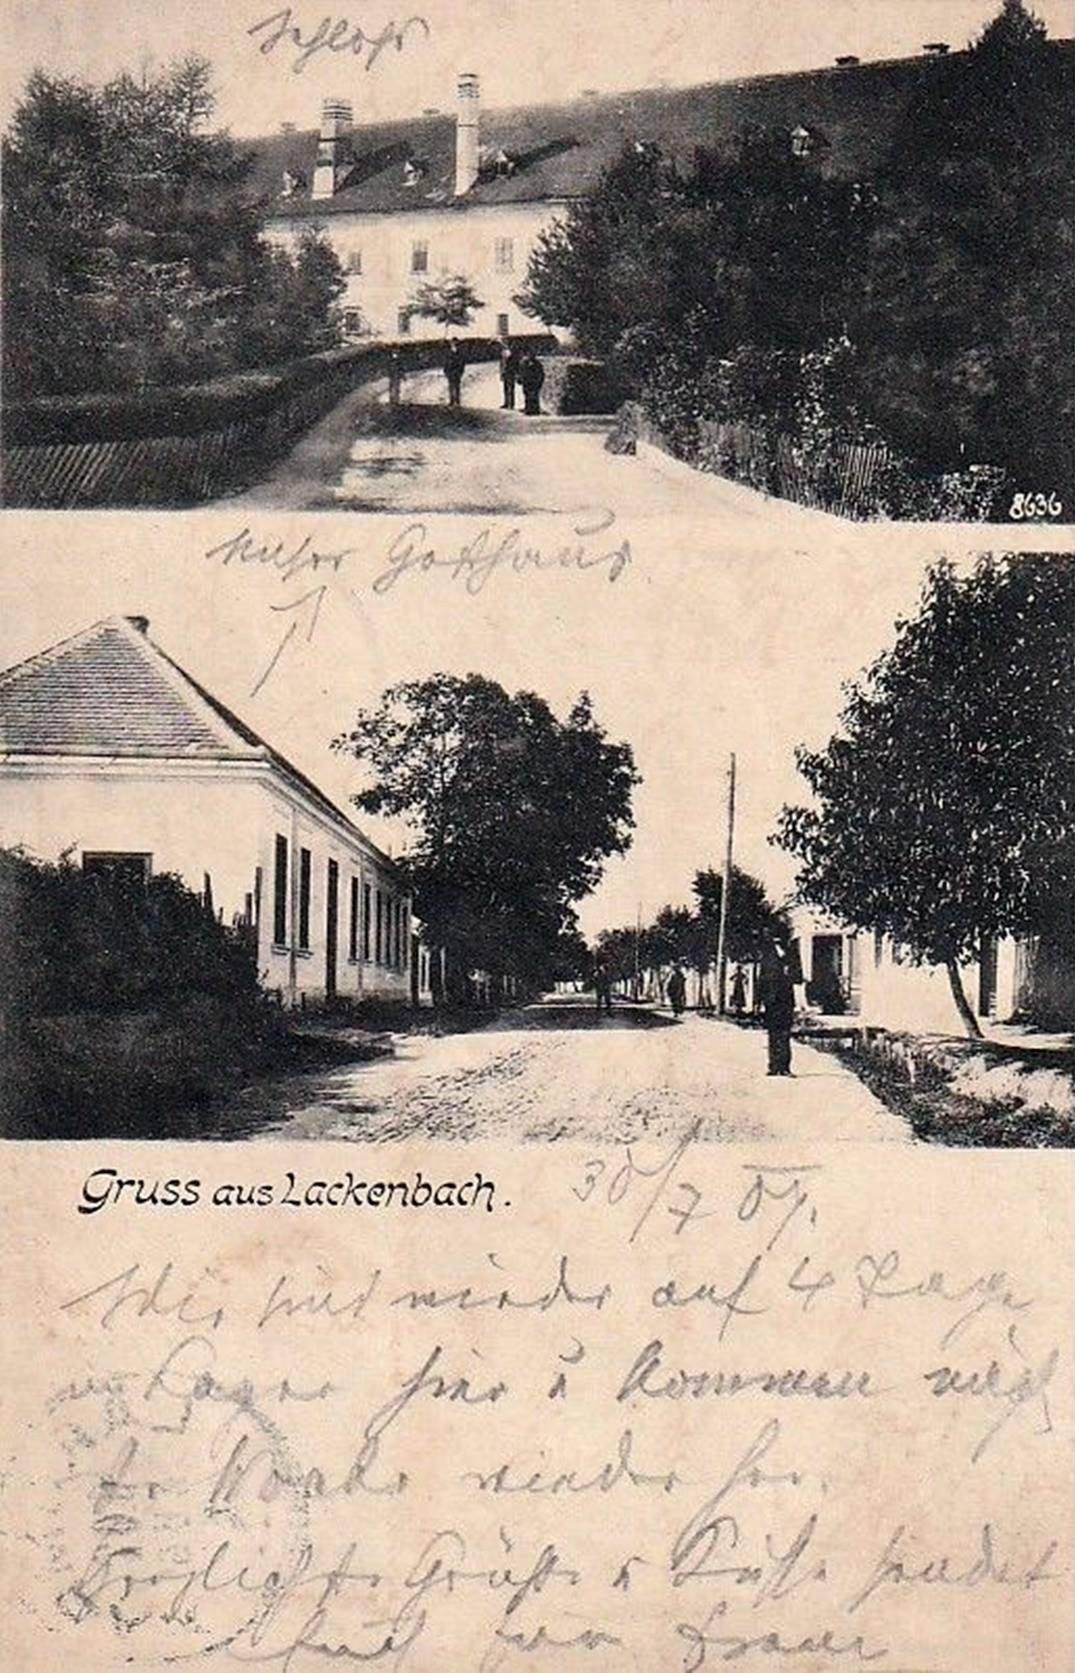 Schloss
8636
unser Gasthaus
Gruss aus Lackenbach.
30/7 07.
Wir sind wieder auf 4 Tage
Lager hier u kommen näch
Woche wieder her.
Herzlichste Grüße u Küsse sendet